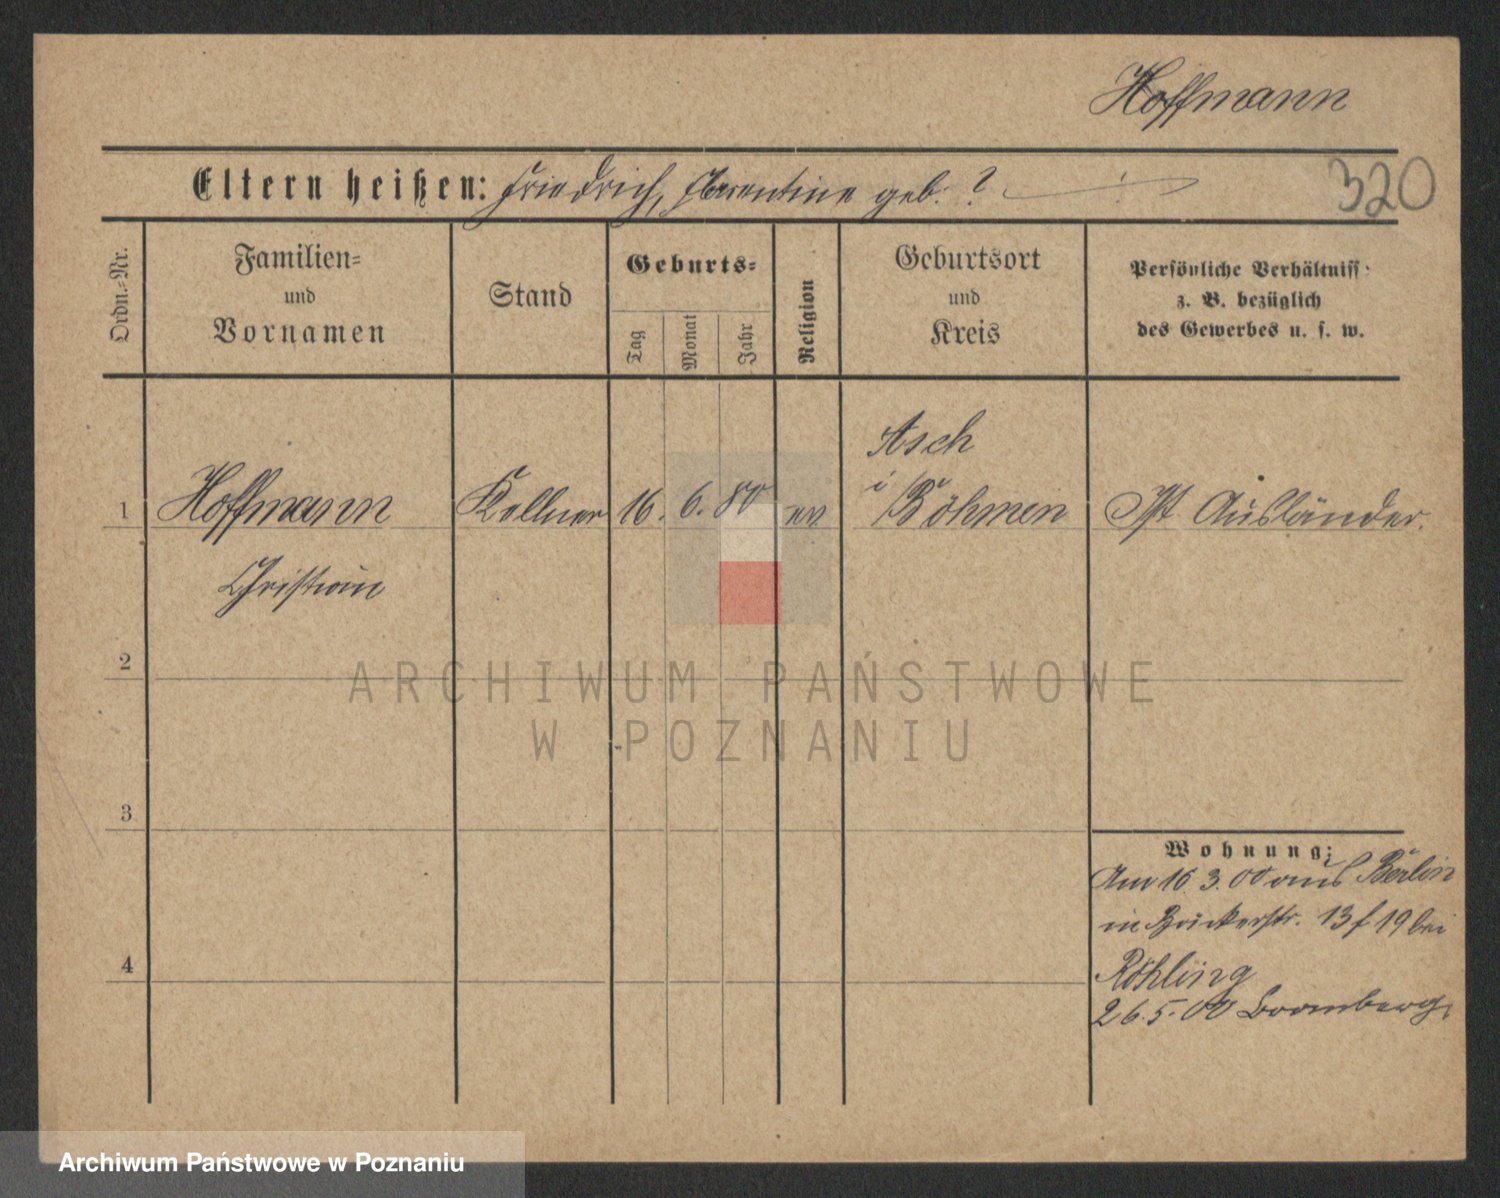 Hoffmann
320
Eltern heißen: Friedrich, Florentine geb. ?
Ordn.-Nr.
Familien-
und
Vornamen
Stand
Geburts-
Tag
Monat
Jahr
Religion
Geburtsort
und
Kreis
Persönliche Verhältniss
z. B. bezüglich
des Gewerbes u. s. w.
Asch
1 Hoffmann Kellner 16. 6. 80 ev i/Böhmen Ist Ausländer.
Christian
2
ARCHIWUM PAŃSTWOWE
W POZNANIU
3
Wohnung:
Am 16 3. 00 aus Berlin
in Bäckerstr. 13 f 19 bei
Röhling
4
26. 5. 00 Bromberg.
Archiwum Państwowe w Poznaniu